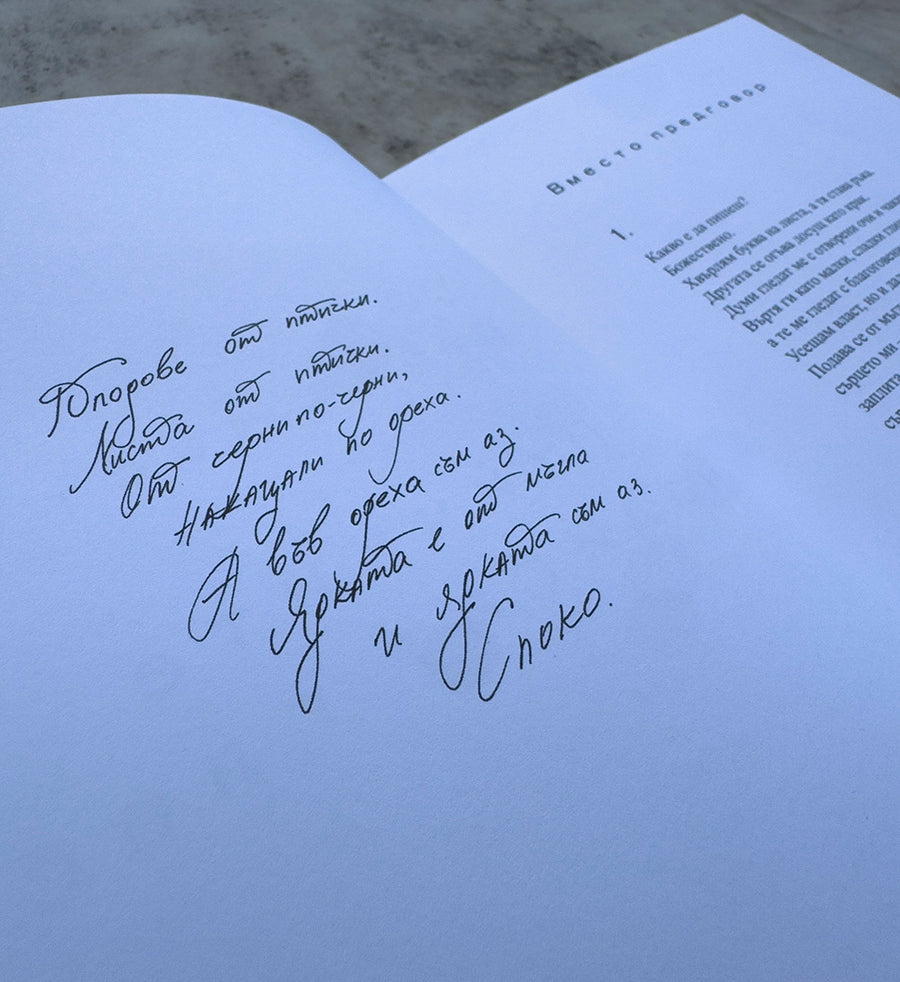 от птички.
Листа от птички.
От черни по-черни,
накацали по ореха.
А във ореха съм аз.
Ярката е от мъгла
и ярката съм аз.
Споко.
Вместо предговор
1.
Какво е да пишеш?
Божествено.
Хвърлям буква на листа, а тя става ръка.
Другата се огъва досущ като крак.
Думи гледат ме с отворени очи и
Въртя ги като малки, сладки
а те ме гледат с
Усещам власт, но и
Подава се от
сърцето ми -
заплита